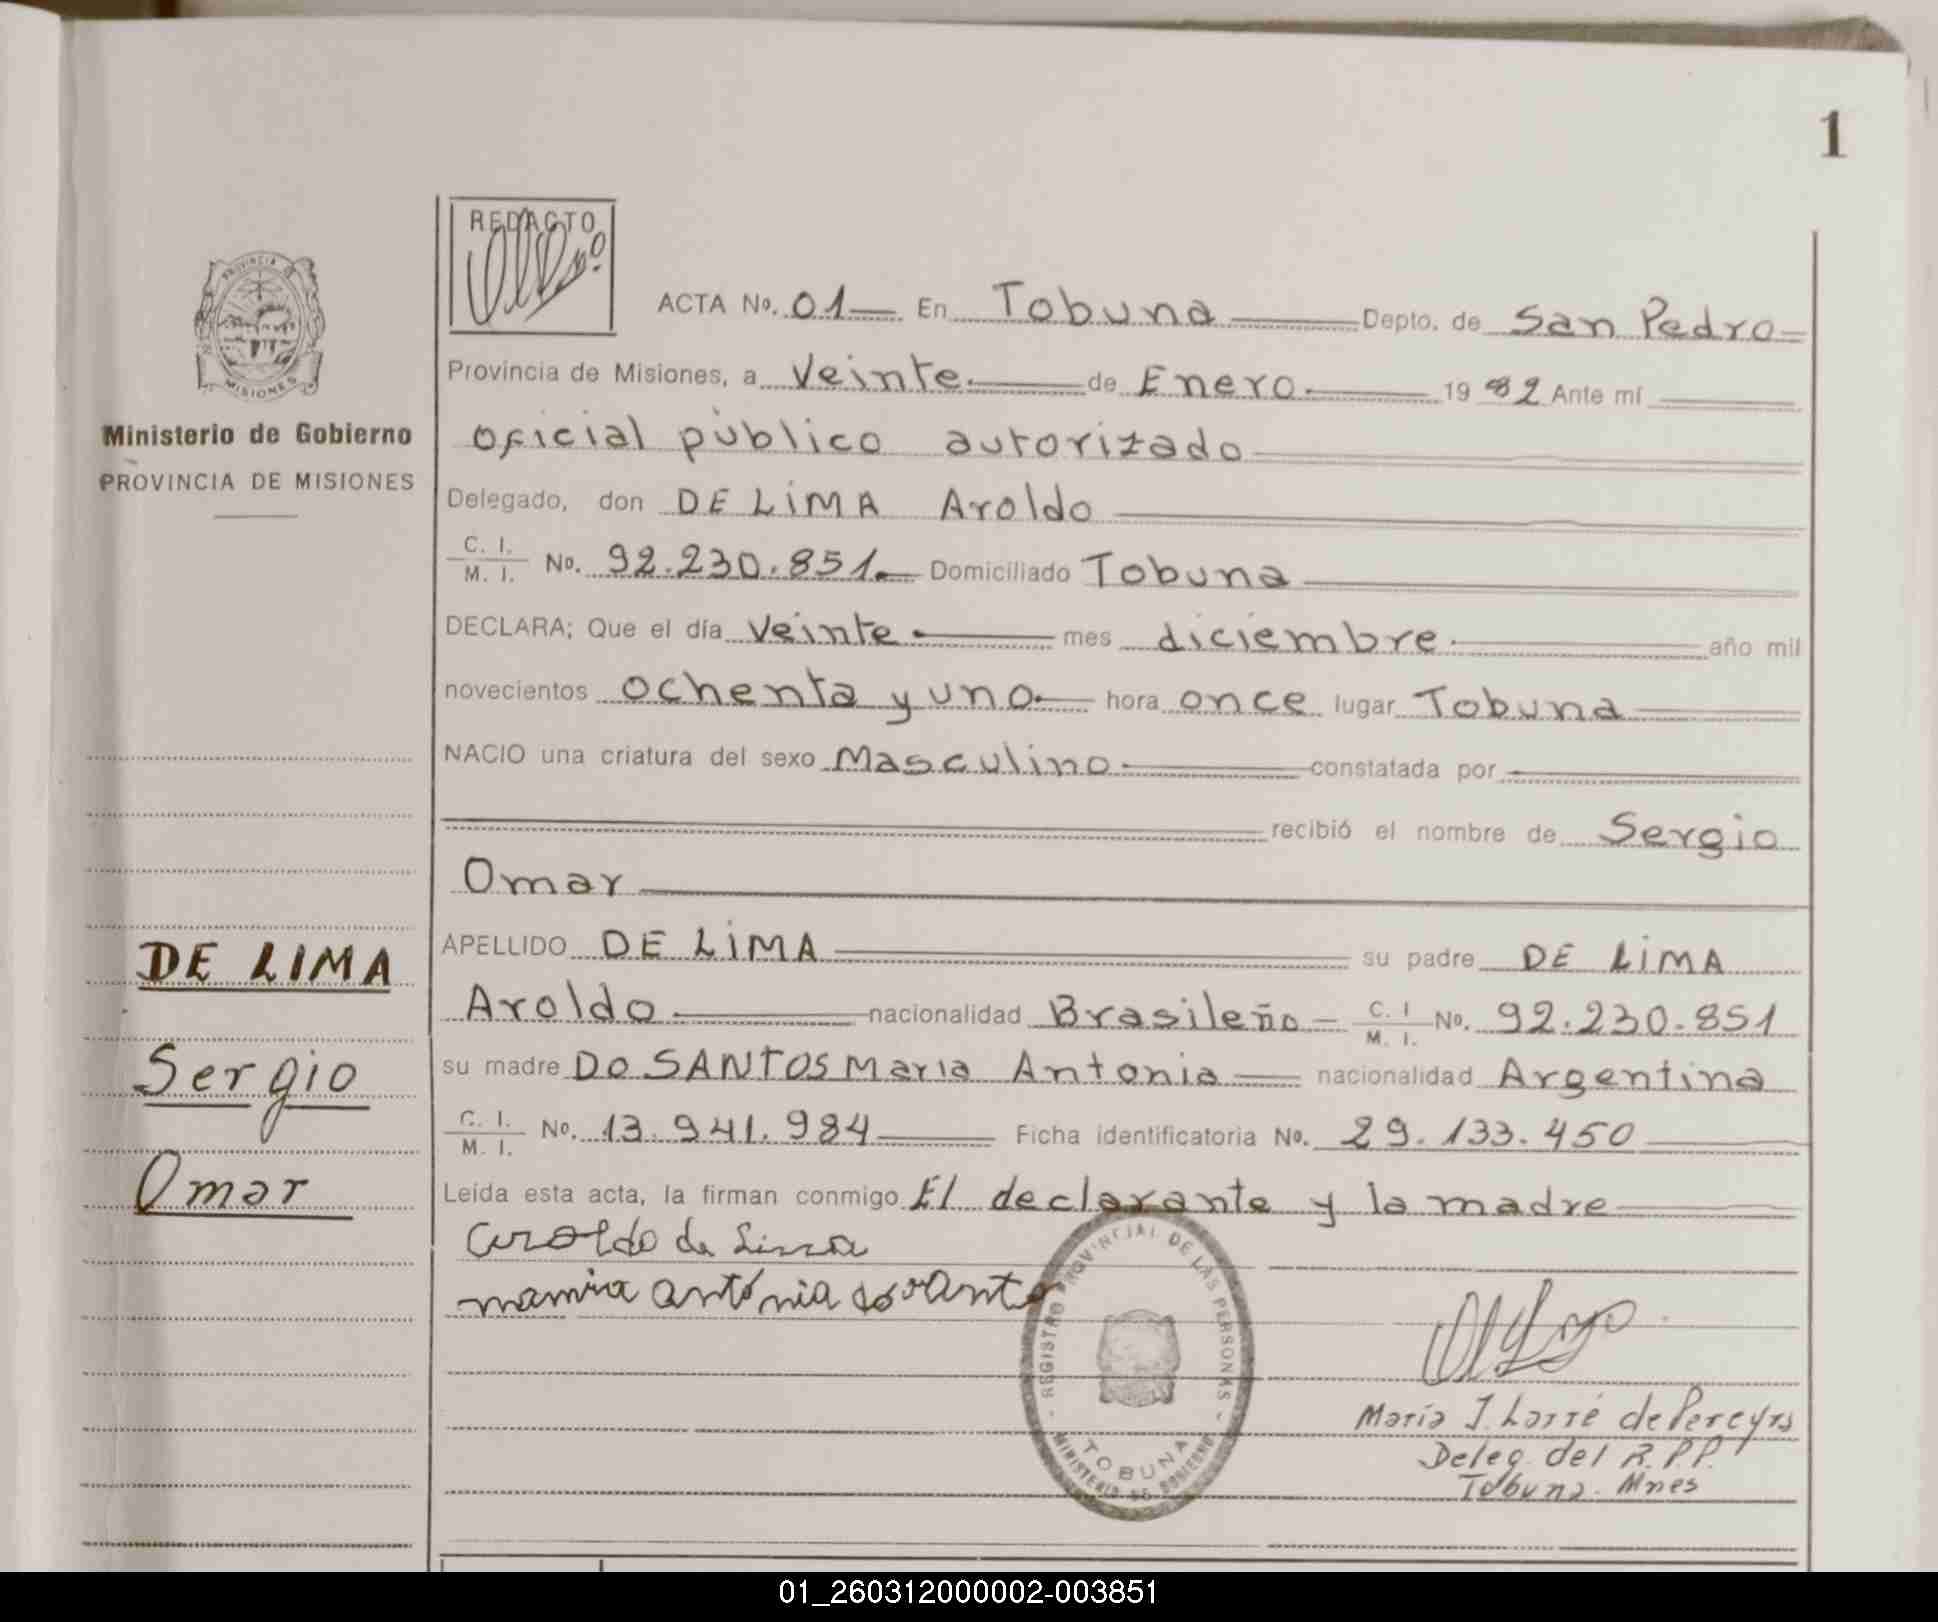 1
REDACTO
ACTA No. 01 En Tobuna Depto. de San Pedro
Provincia de Misiones, a Veinte de Enero 1982 Ante mí
oficial público autorizado
Delegado, don DE LIMA Aroldo
C. I. / M. I. No. 92.230.851. Domiciliado Tobuna
DECLARA; Que el día Veinte mes diciembre año mil
novecientos ochenta y uno hora once lugar Tobuna
NACIO una criatura del sexo Masculino constatada por
recibió el nombre de Sergio
Omar
APELLIDO DE LIMA su padre DE LIMA
Aroldo nacionalidad Brasileño C. I. / M. I. No. 92.230.851
su madre DO SANTOS Maria Antonia nacionalidad Argentina
C. I. / M. I. No. 13.941.984 Ficha identificatoria No. 29.133.450
Leída esta acta, la firman conmigo El declarante y la madre
Aroldo de Lima
antónia
María J. Larré de Pereyra
Deleg. del R.P.P.
Tobuna. Mnes
REGISTRO PROVINCIAL DE LAS PERSONAS
TOBUNA
MINISTERIO DE GOBIERNO
PROVINCIA DE
MISIONES
Ministerio de Gobierno
PROVINCIA DE MISIONES
DE LIMA
Sergio
Omar
01_260312000002-003851